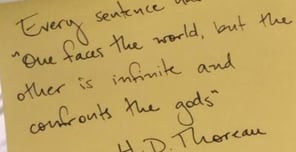 Every sentence
"One faces the world, but the
other is infinite and
confronts the gods"
H. D. Thoreau